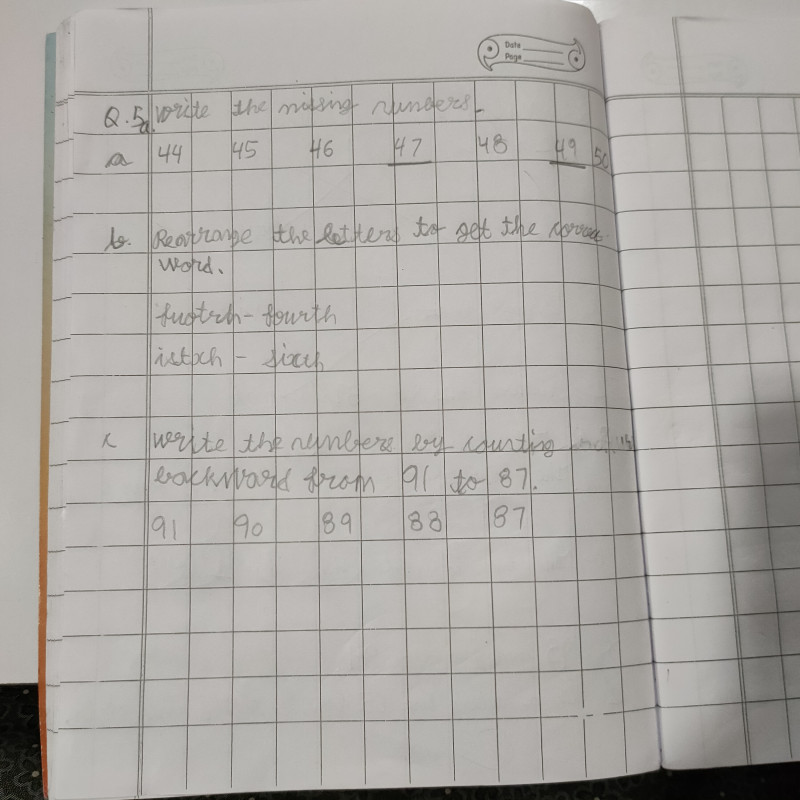 Date
Page
Q.5a. Write the missing numbers.
a 44 45 46 47 48 49 50
b. Rearrange the letters to get the
word.
fuotrh - fourth
istxh - sixth
c write the numbers by counting
backward from 91 to 87.
91 90 89 88 87